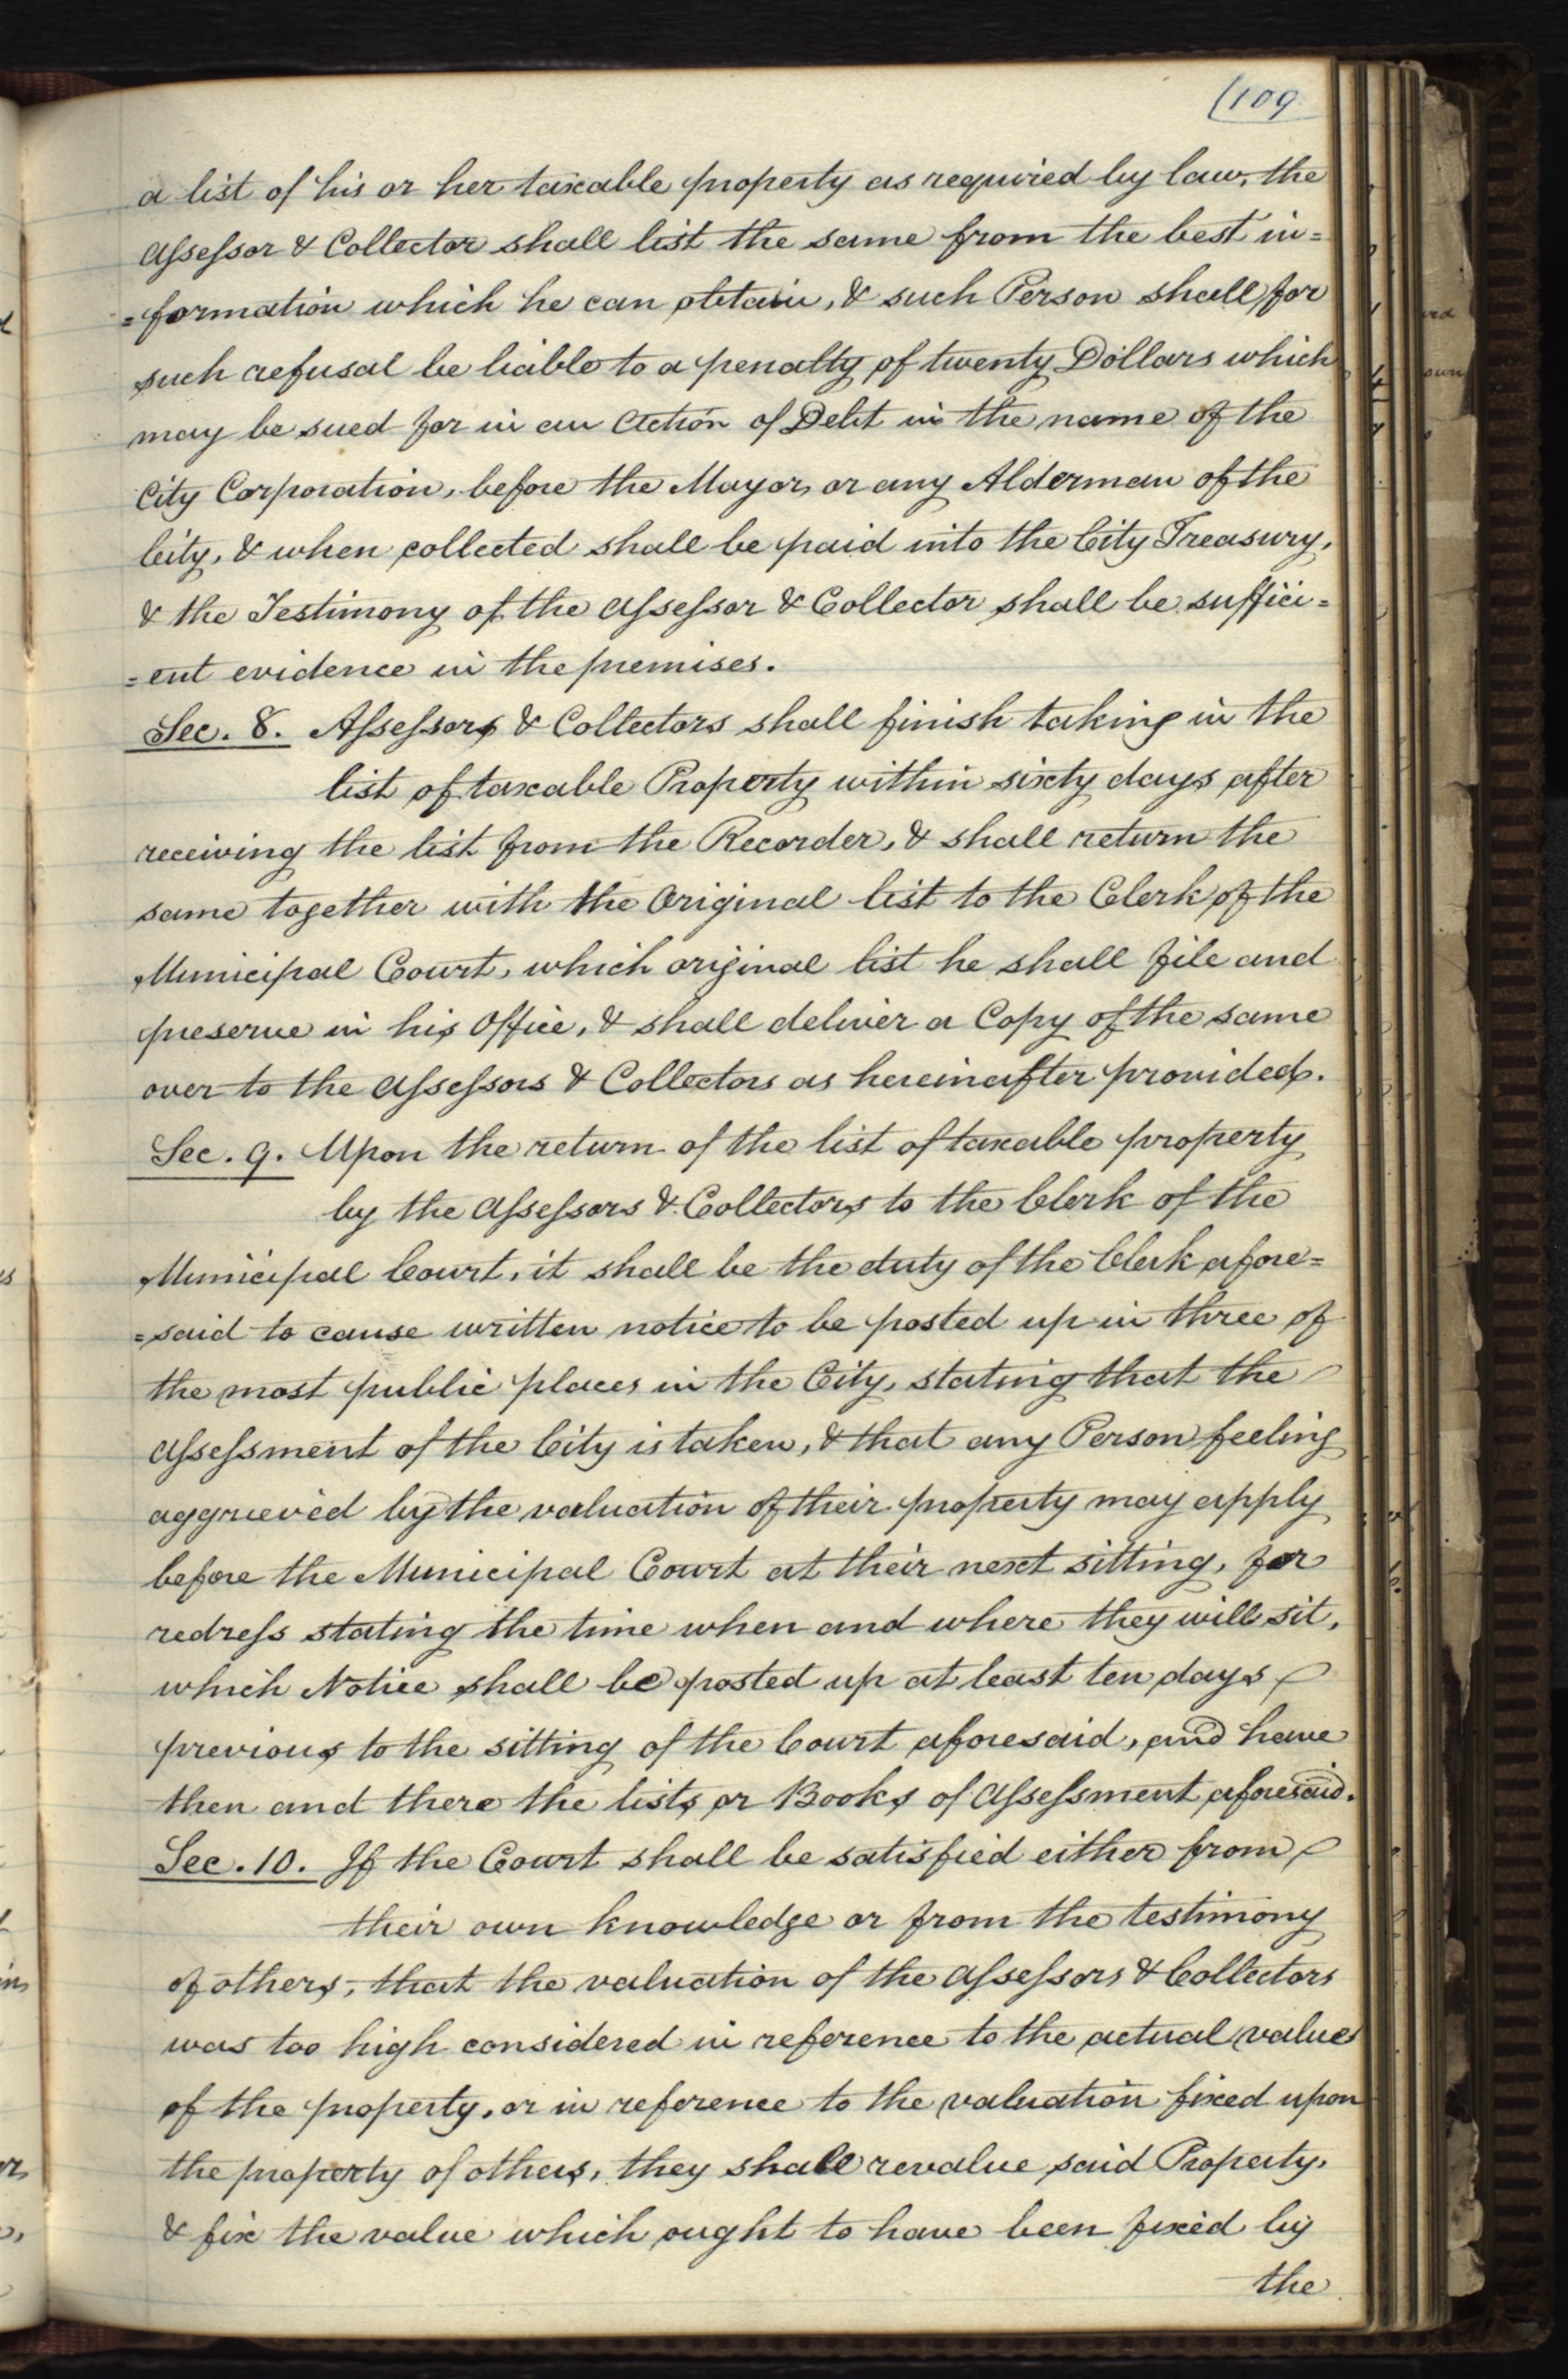 (109
a list of his or her taxable property as required by law, the
Assessor & Collector shall list the same from the best in=
=formation which he can obtain, & such Person shall for
such refusal be liable to a penalty of twenty Dollars which
may be sued for in an Action of Debt in the name of the
City Corporation, before the Mayor, or any Alderman of the
City, & when collected shall be paid into the City Treasury,
& the Testimony of the Assessor & Collector shall be suffici=
=ent evidence in the premises.
Sec. 8. Assessors & Collectors shall finish taking in the
list of taxable Property within sixty days after
receiving the list from the Recorder, & shall return the
same together with the Original list to the Clerk of the
Municipal Court, which original list he shall file and
preserve in his Office, & shall deliver a Copy of the same
over to the Assessors & Collectors as hereinafter provided.
Sec. 9. Upon the return of the list of taxable property
by the Assessors & Collectors to the Clerk of the
Municipal Court, it shall be the duty of the Clerk afore=
=said to cause written notice to be posted up in three of
the most public places in the City, stating that the
Assessment of the City is taken, & that any Person feeling
aggrieved by the valuation of their property may apply
before the Municipal Court at their next sitting, for
redress stating the time when and where they will sit,
which Notice shall be posted up at least ten days
previous to the sitting of the Court aforesaid, and have
then and there the lists or Books of Assessment aforesaid.
Sec. 10. If the Court shall be satisfied either from
their own knowledge or from the testimony
of others, that the valuation of the Assessors & Collectors
was too high considered in reference to the actual value
of the property, or in reference to the valuation fixed upon
the property of others, they shall revalue said Property,
& fix the value which ought to have been fixed by
the